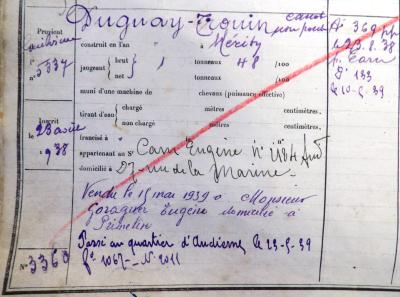 Duguay-Trouin canot non ponté
Provient
n° 5337
construit en l'an
à Méribe
jaugeant { brut / net } tonneaux 48 /100
tonneaux /100
muni d'une machine de chevaux (puissance effective)
tirant d'eau { chargé / non chargé } mètres centimètres.
mètres centimètres.
Inscrit
le 23 août
1938
francisé à
appartenant au Sr Cam Eugène N°
domicilié à 27 rue de la Marine
Vendu le 15 mai 1939 à Monsieur
Goraguer Eugène domicilié à
Primelin
Passé au quartier d'Audierne le 23-5-39
f° 1067 - N° 2011
N° 3360
f° 369
le 23.8.38
f° 133
le 10-5-39